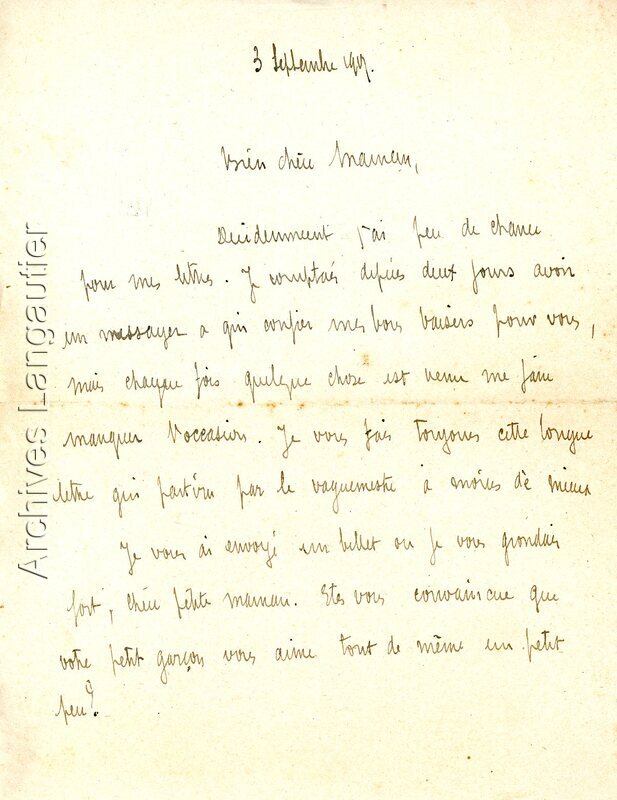 3 Septembre 1917.
Bien chère Maman,
Décidemment j'ai peu de chance
pour mes lettres. Je comptais depuis deux jours avoir
un messager a qui confier mes bons baisers pour vous,
mais chaque fois quelque chose est venu me faire
manquer l'occasion. Je vous fais toujours cette longue
lettre qui partira par le vaguemestre à moins de mieux
Je vous ai envoyé un billet ou je vous grondais
fort, chère petite maman. Etes vous convaincue que
votre petit garçon vous aime tout de même un petit
peu?
Archives Langautier